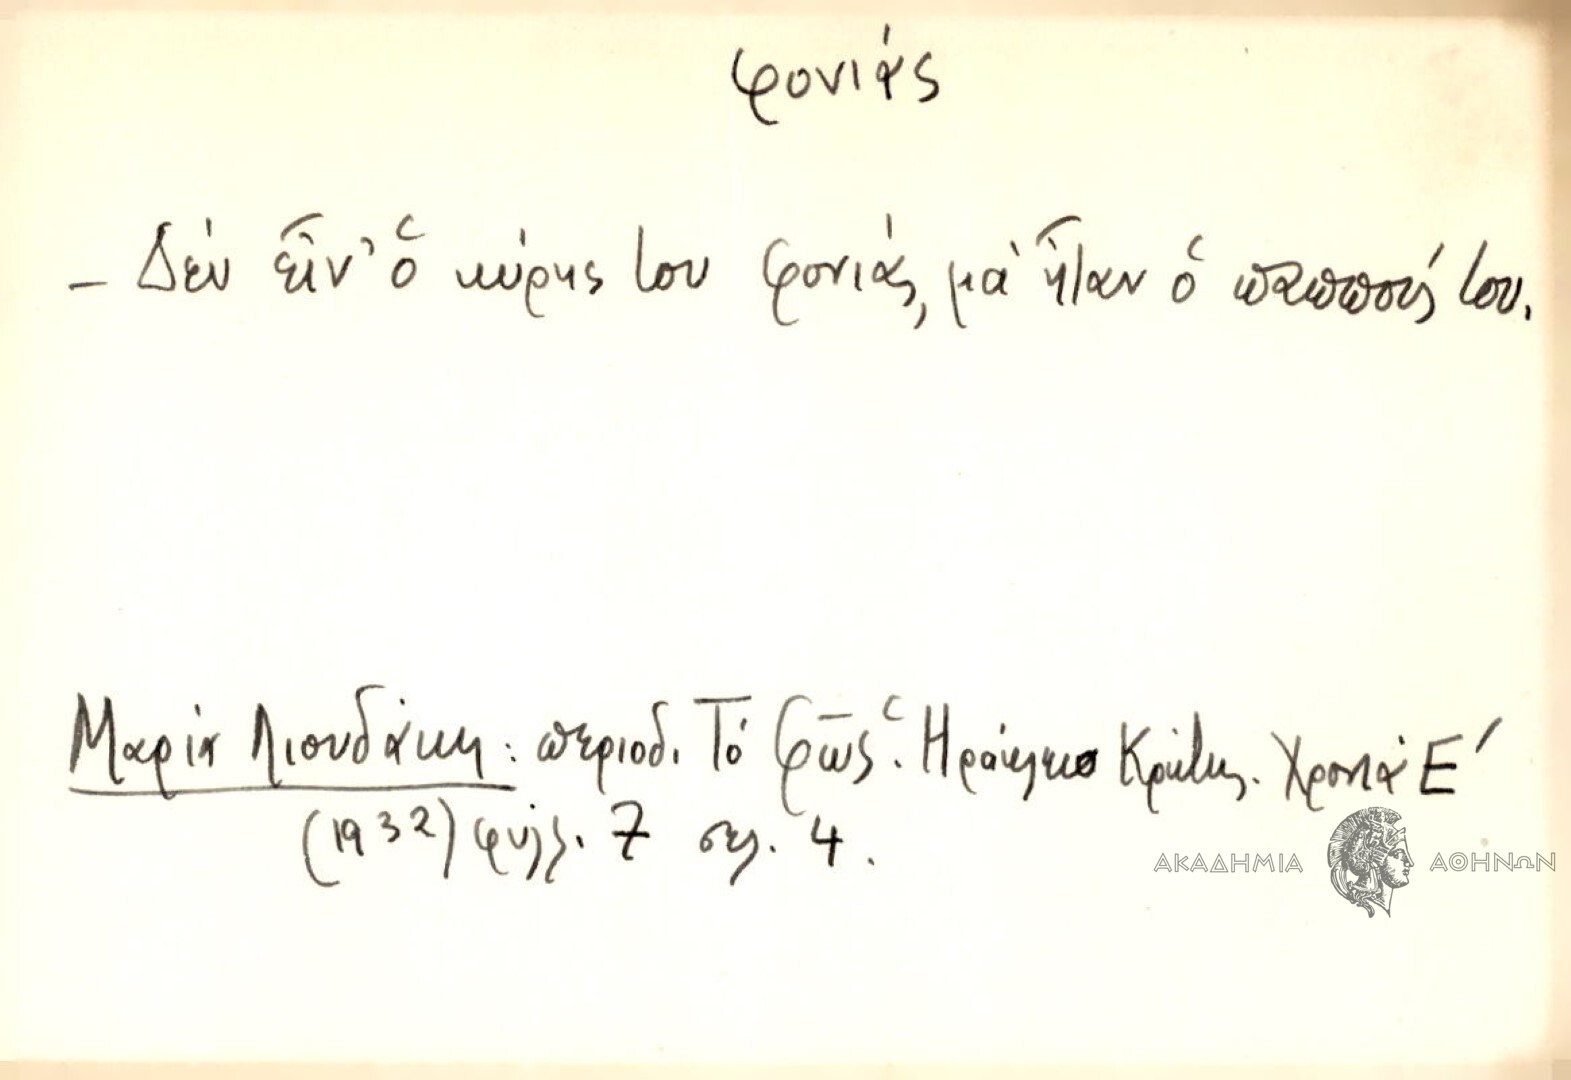 φονιάς
– Δέν εἶν' ὁ κύρης του φονιάς, μά ἦταν ὁ παππούς του.
Μαρία Λιουδάκη: περιοδ. Τό Φῶς. Ἡράκλειο Κρήτης. Χρονιά Ε΄
(1932) φύλλ. 7 σελ. 4.
ΑΚΑΔΗΜΙΑ ΑΘΗΝΩΝ